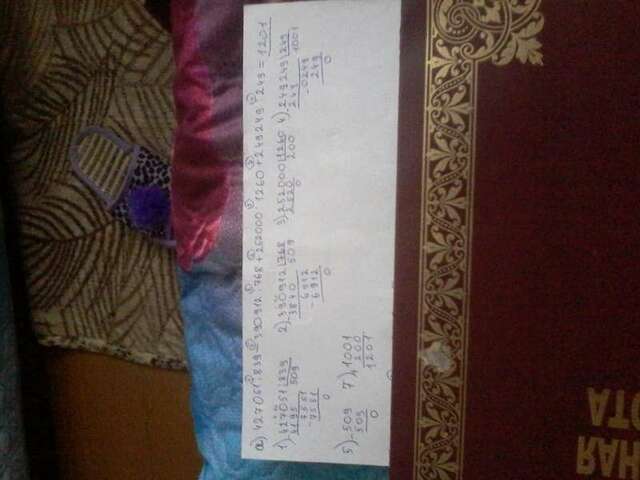 а) 427051:839-390912:768+252000:1260+249249:249=1201
1) 427051 839 2) 390912 768 3) 252000 1260 4) 249249 249
4195 509 3840 509 2520 200 249 1001
7551 6912 0 0249
7551 6912 249
0 0 0
5) 509 7) 1001
509 200
0 1201
НАЯ
ОТА